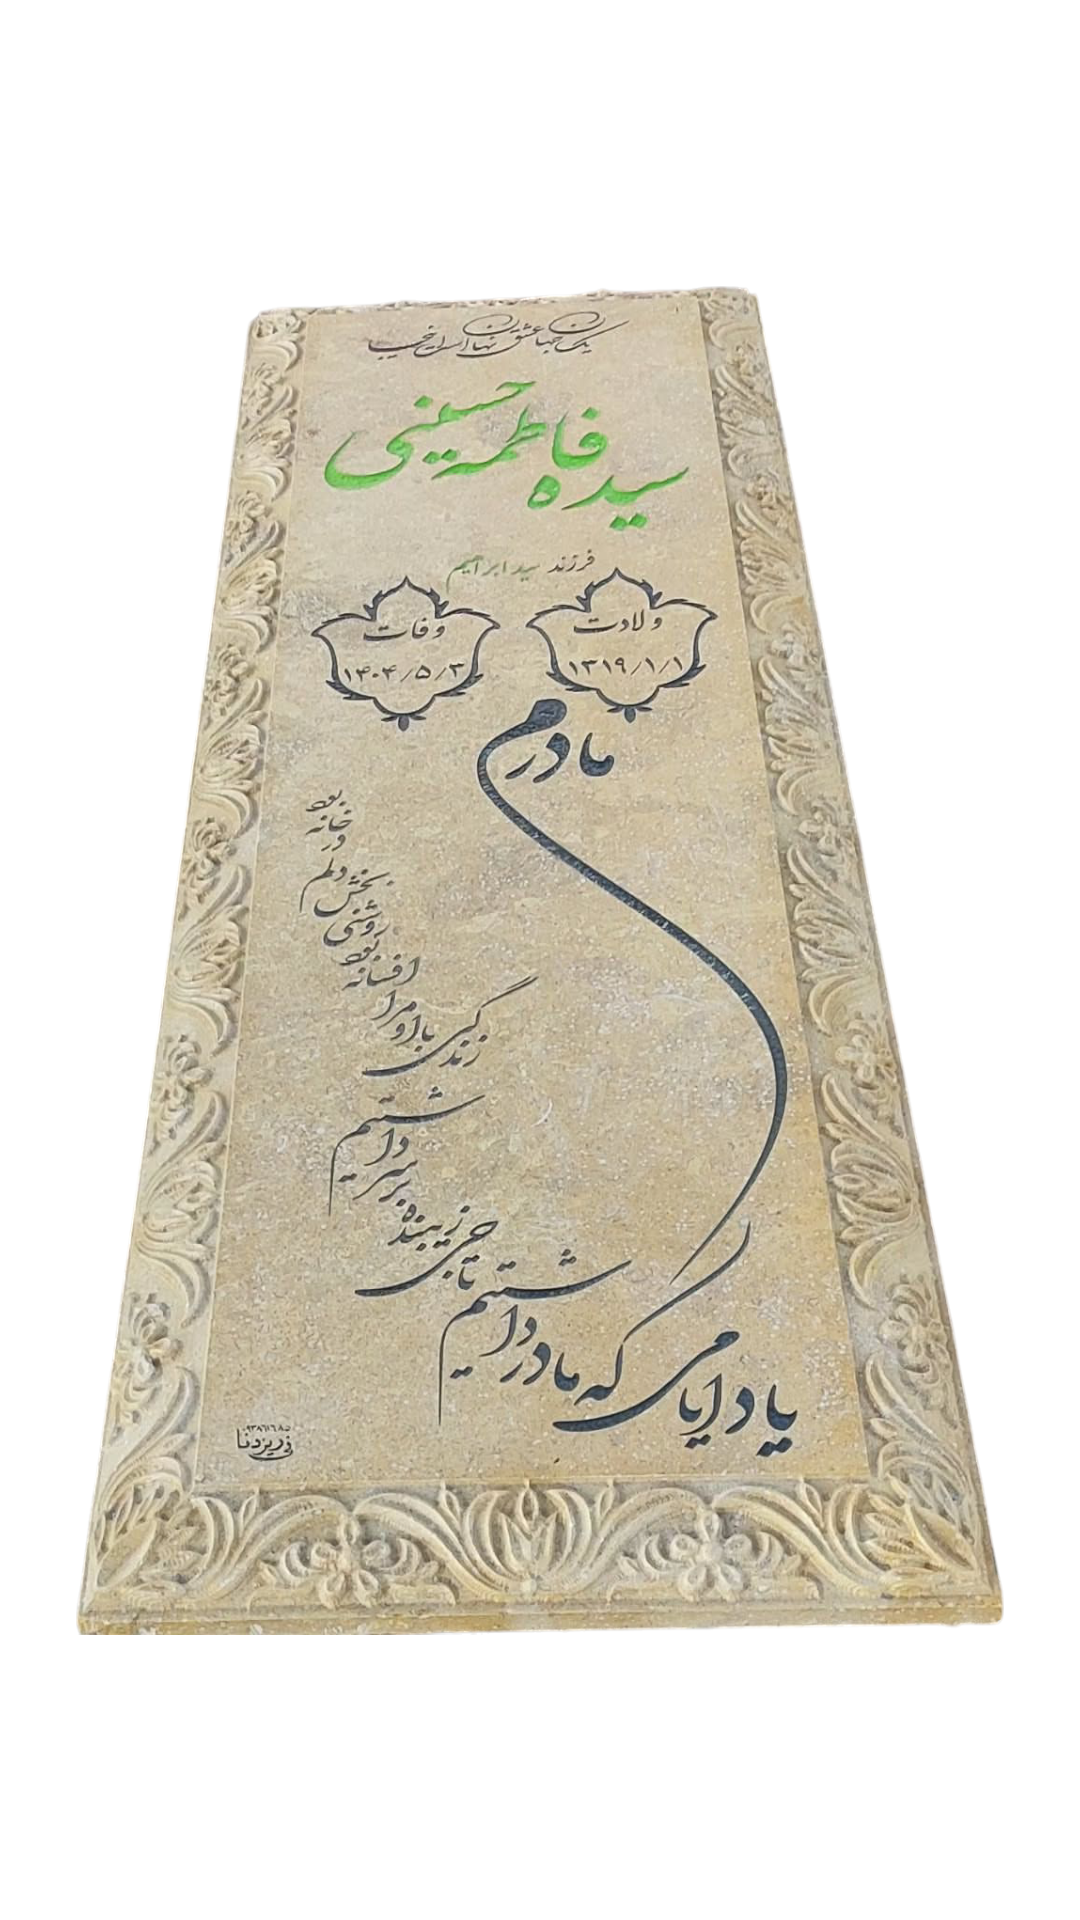 یک جهان عشق نهان است اینجا
سیده فاطمه حسینی
فرزند سید ابراهیم
ولادت
۱۳۱۹/۱/۱
وفات
۱۴۰۴/۵/۳
مادرم
یاد ایامی که مادر داشتیم
تاجی زیبنده بر سر داشتیم
زندگی با او مرا افسانه بود
روشنی بخش دلم در خانه بود
نی ریز دنا